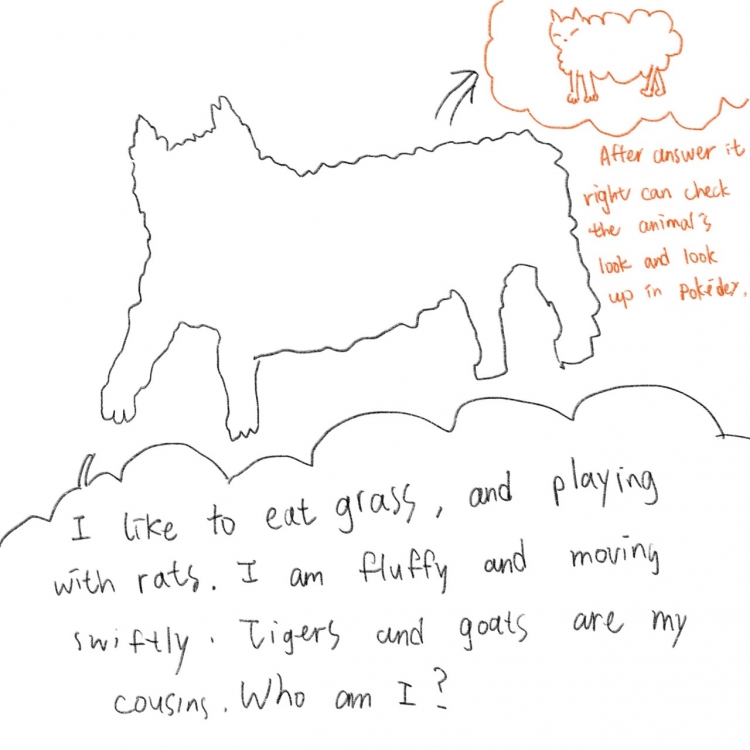 After answer it
right can check
the animal's
look and look
up in Pokédex.
I like to eat grass, and playing
with rats. I am fluffy and moving
swiftly. Tigers and goats are my
cousins. Who am I?